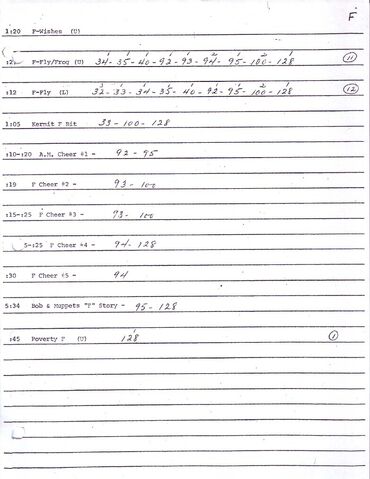 F
1:20 F-Wishes (U)
F-Fly/Frog (U) 34 - 35 - 40 - 92 - 93 - 94 - 95 - 100 - 128 11
:12 F-Fly (L) 32 - 33 - 34 - 35 - 40 - 92 - 95 - 100 - 128 12
1:05 Kermit F Bit 33 - 100 - 128
:10-:20 A.M. Cheer #1 - 92 - 95
:19 F Cheer #2 - 93 - 100
:15-:25 F Cheer #3 - 93 - 100
5-:25 F Cheer #4 - 94 - 128
:30 F Cheer #5 - 94
5:34 Bob & Muppets "F" Story - 95 - 128
:45 Poverty F (U) 128 1